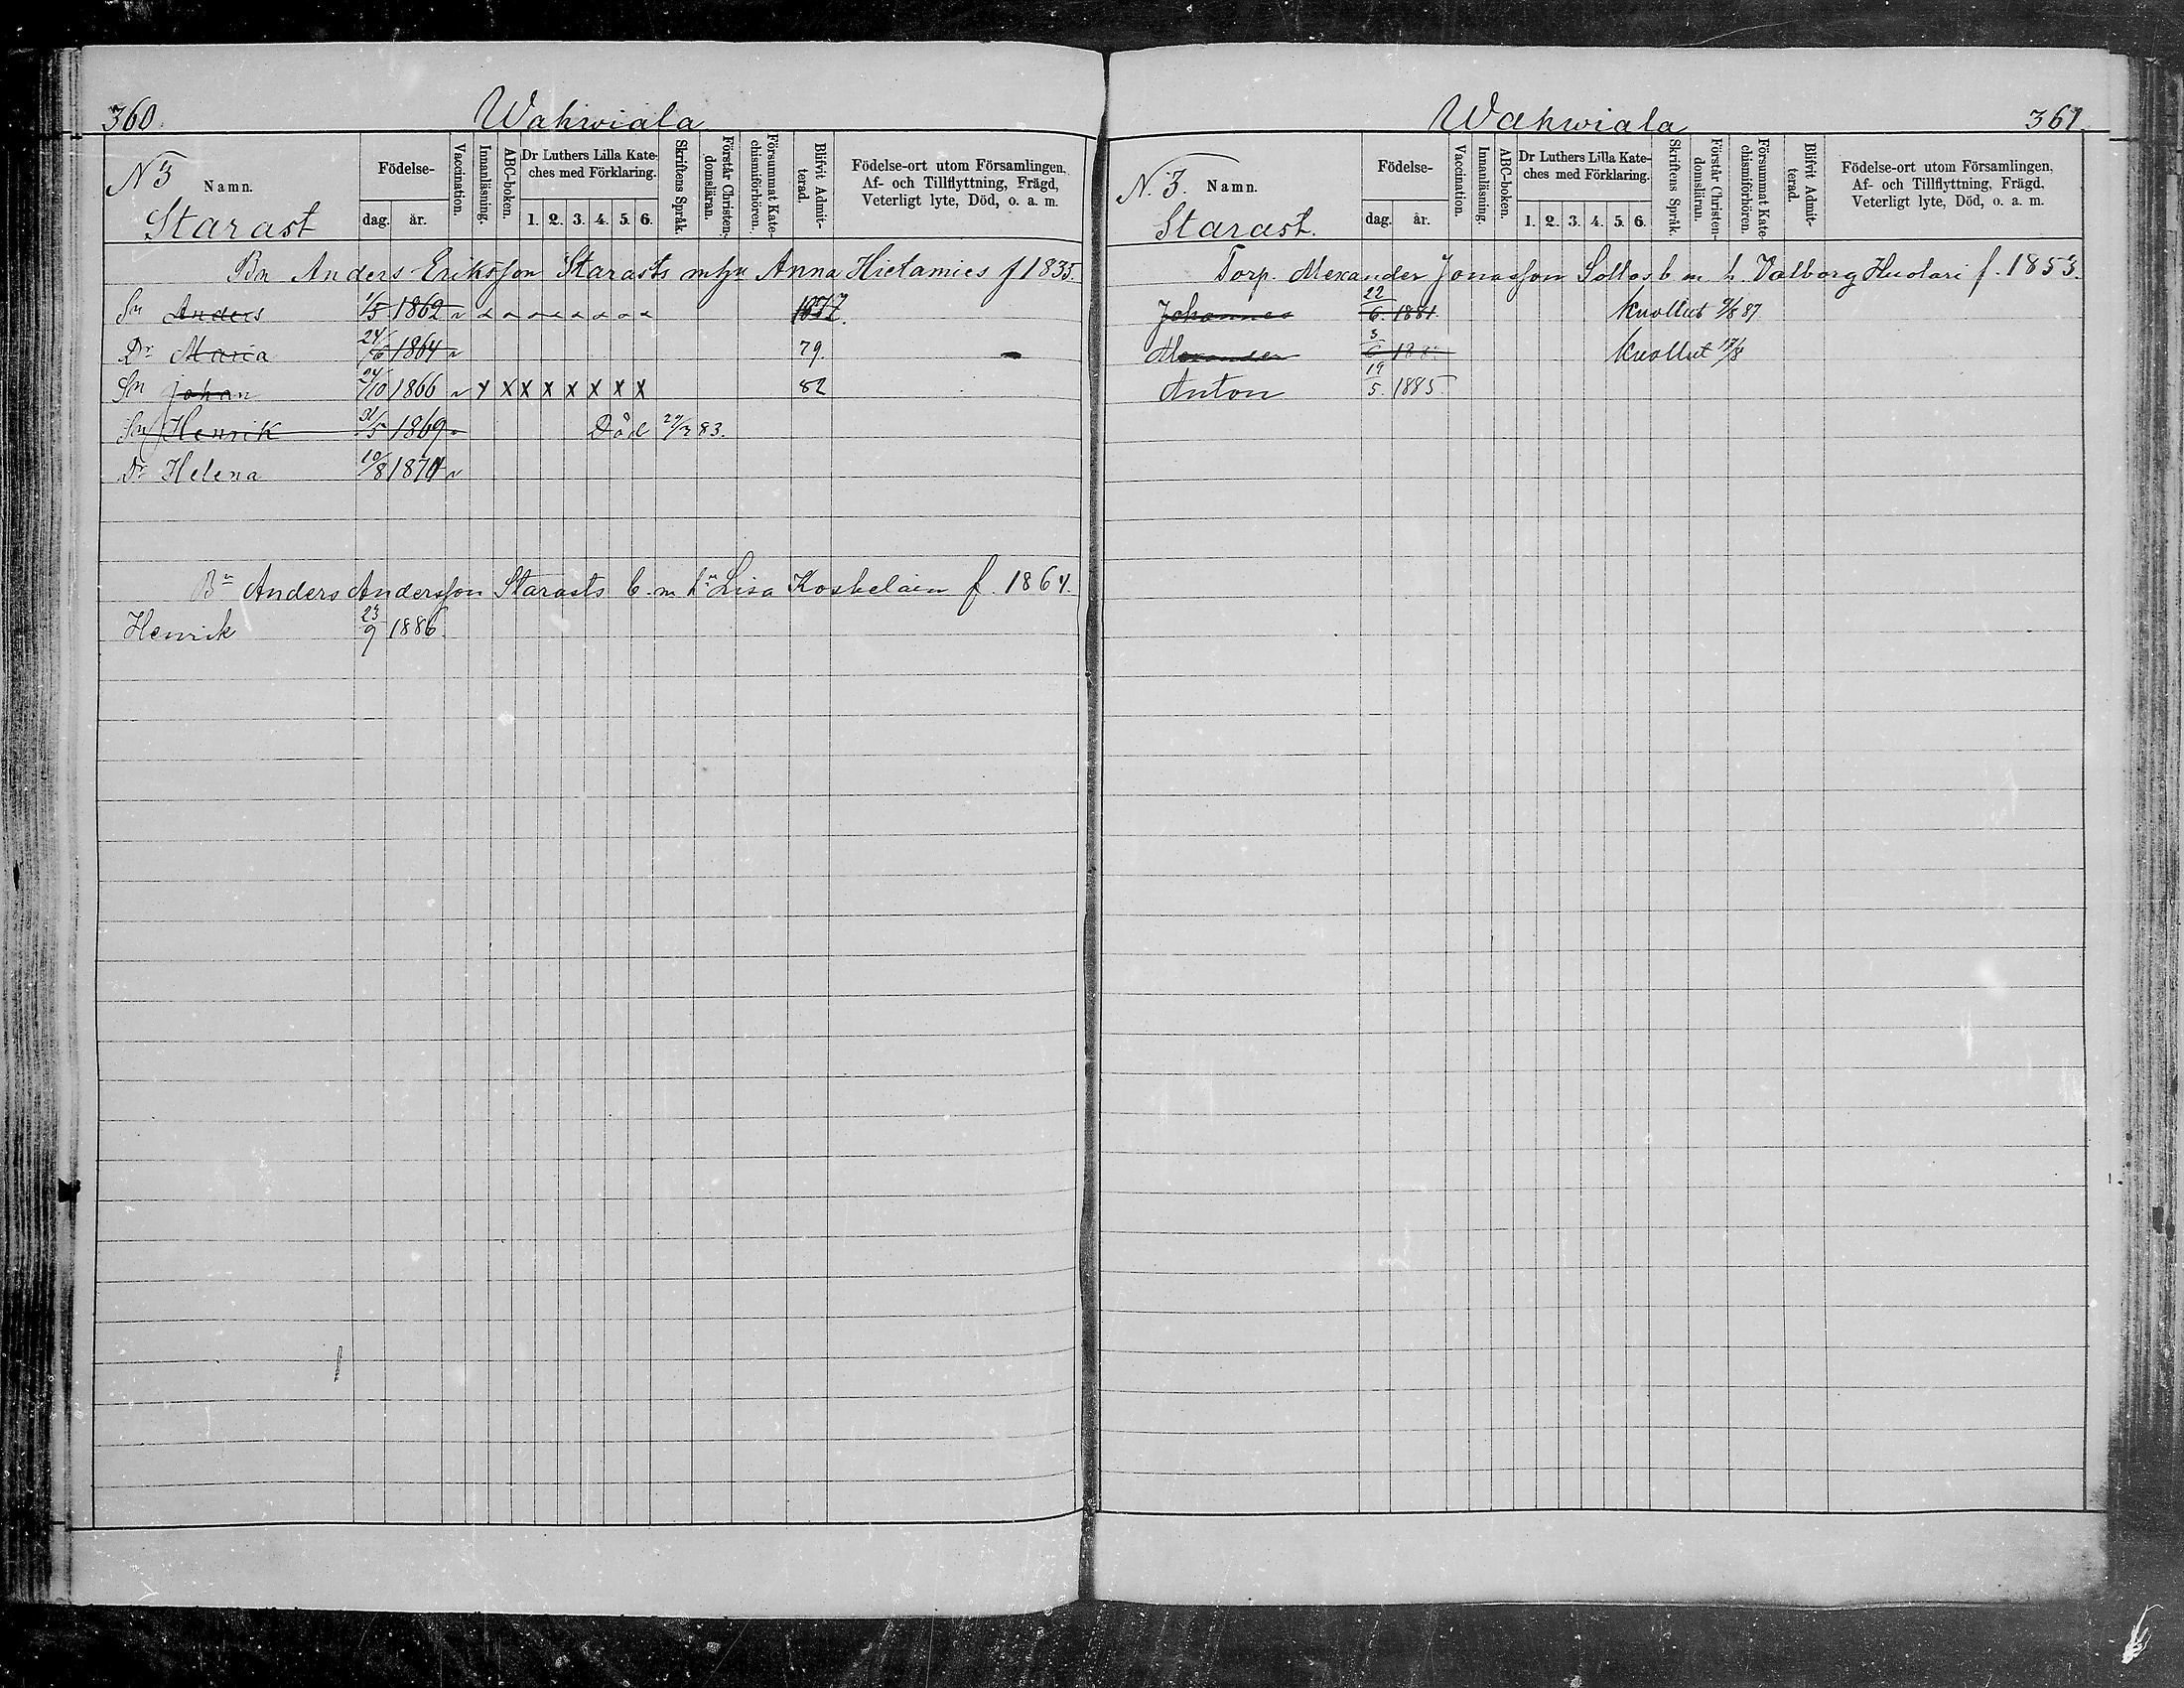 360.
Wahwiala
N 3
Namn.
Starast
Födelse-
dag.
år.
Vaccination.
Innanläsning.
ABC-boken.
Dr Luthers Lilla Kate-
ches med Förklaring.
1. 2. 3. 4. 5. 6.
Skriftens Språk.
Förstår Christen-
domsläran.
Försummat Kate-
chismiförhören.
Blifvit Admit-
terad.
Födelse-ort utom Församlingen,
Af- och Tillflyttning, Frägd,
Veterligt lyte, Död, o. a. m.
Bn Anders Eriksson Starasts m hu Anna Hietamies f 1835.
Sn Anders 1/5 1862
Dr Maria 24/6 1864 79.
Sn Johan 24/10 1866 Y X X X X X X X 82
Sn Henrik 31/5 1869 Död 83.
Dr Helena 10/8 1871
Bn Anders Andersson Starasts b. m. hu Lisa Koskelain f. 1864.
Henrik 23/9 1886.
Wahwiala
361.
N. 3. Namn.
Starast.
Födelse-
dag.
år.
Vaccination.
Innanläsning.
ABC-boken.
Dr Luthers Lilla Kate-
ches med Förklaring.
1. 2. 3. 4. 5. 6.
Skriftens Språk.
Förstår Christen-
domsläran.
Försummat Kate-
chismiförhören.
Blifvit Admit-
terad.
Födelse-ort utom Församlingen,
Af- och Tillflyttning, Frägd,
Veterligt lyte, Död, o. a. m.
Torp. Alexander Jonasson Sollos b m h. Valborg Huolari f. 1853.
Johannes 22/6. 1881. Kuollut 87
Alexander 3/6 Kuollut 17/8
Anton 19/5. 1885.